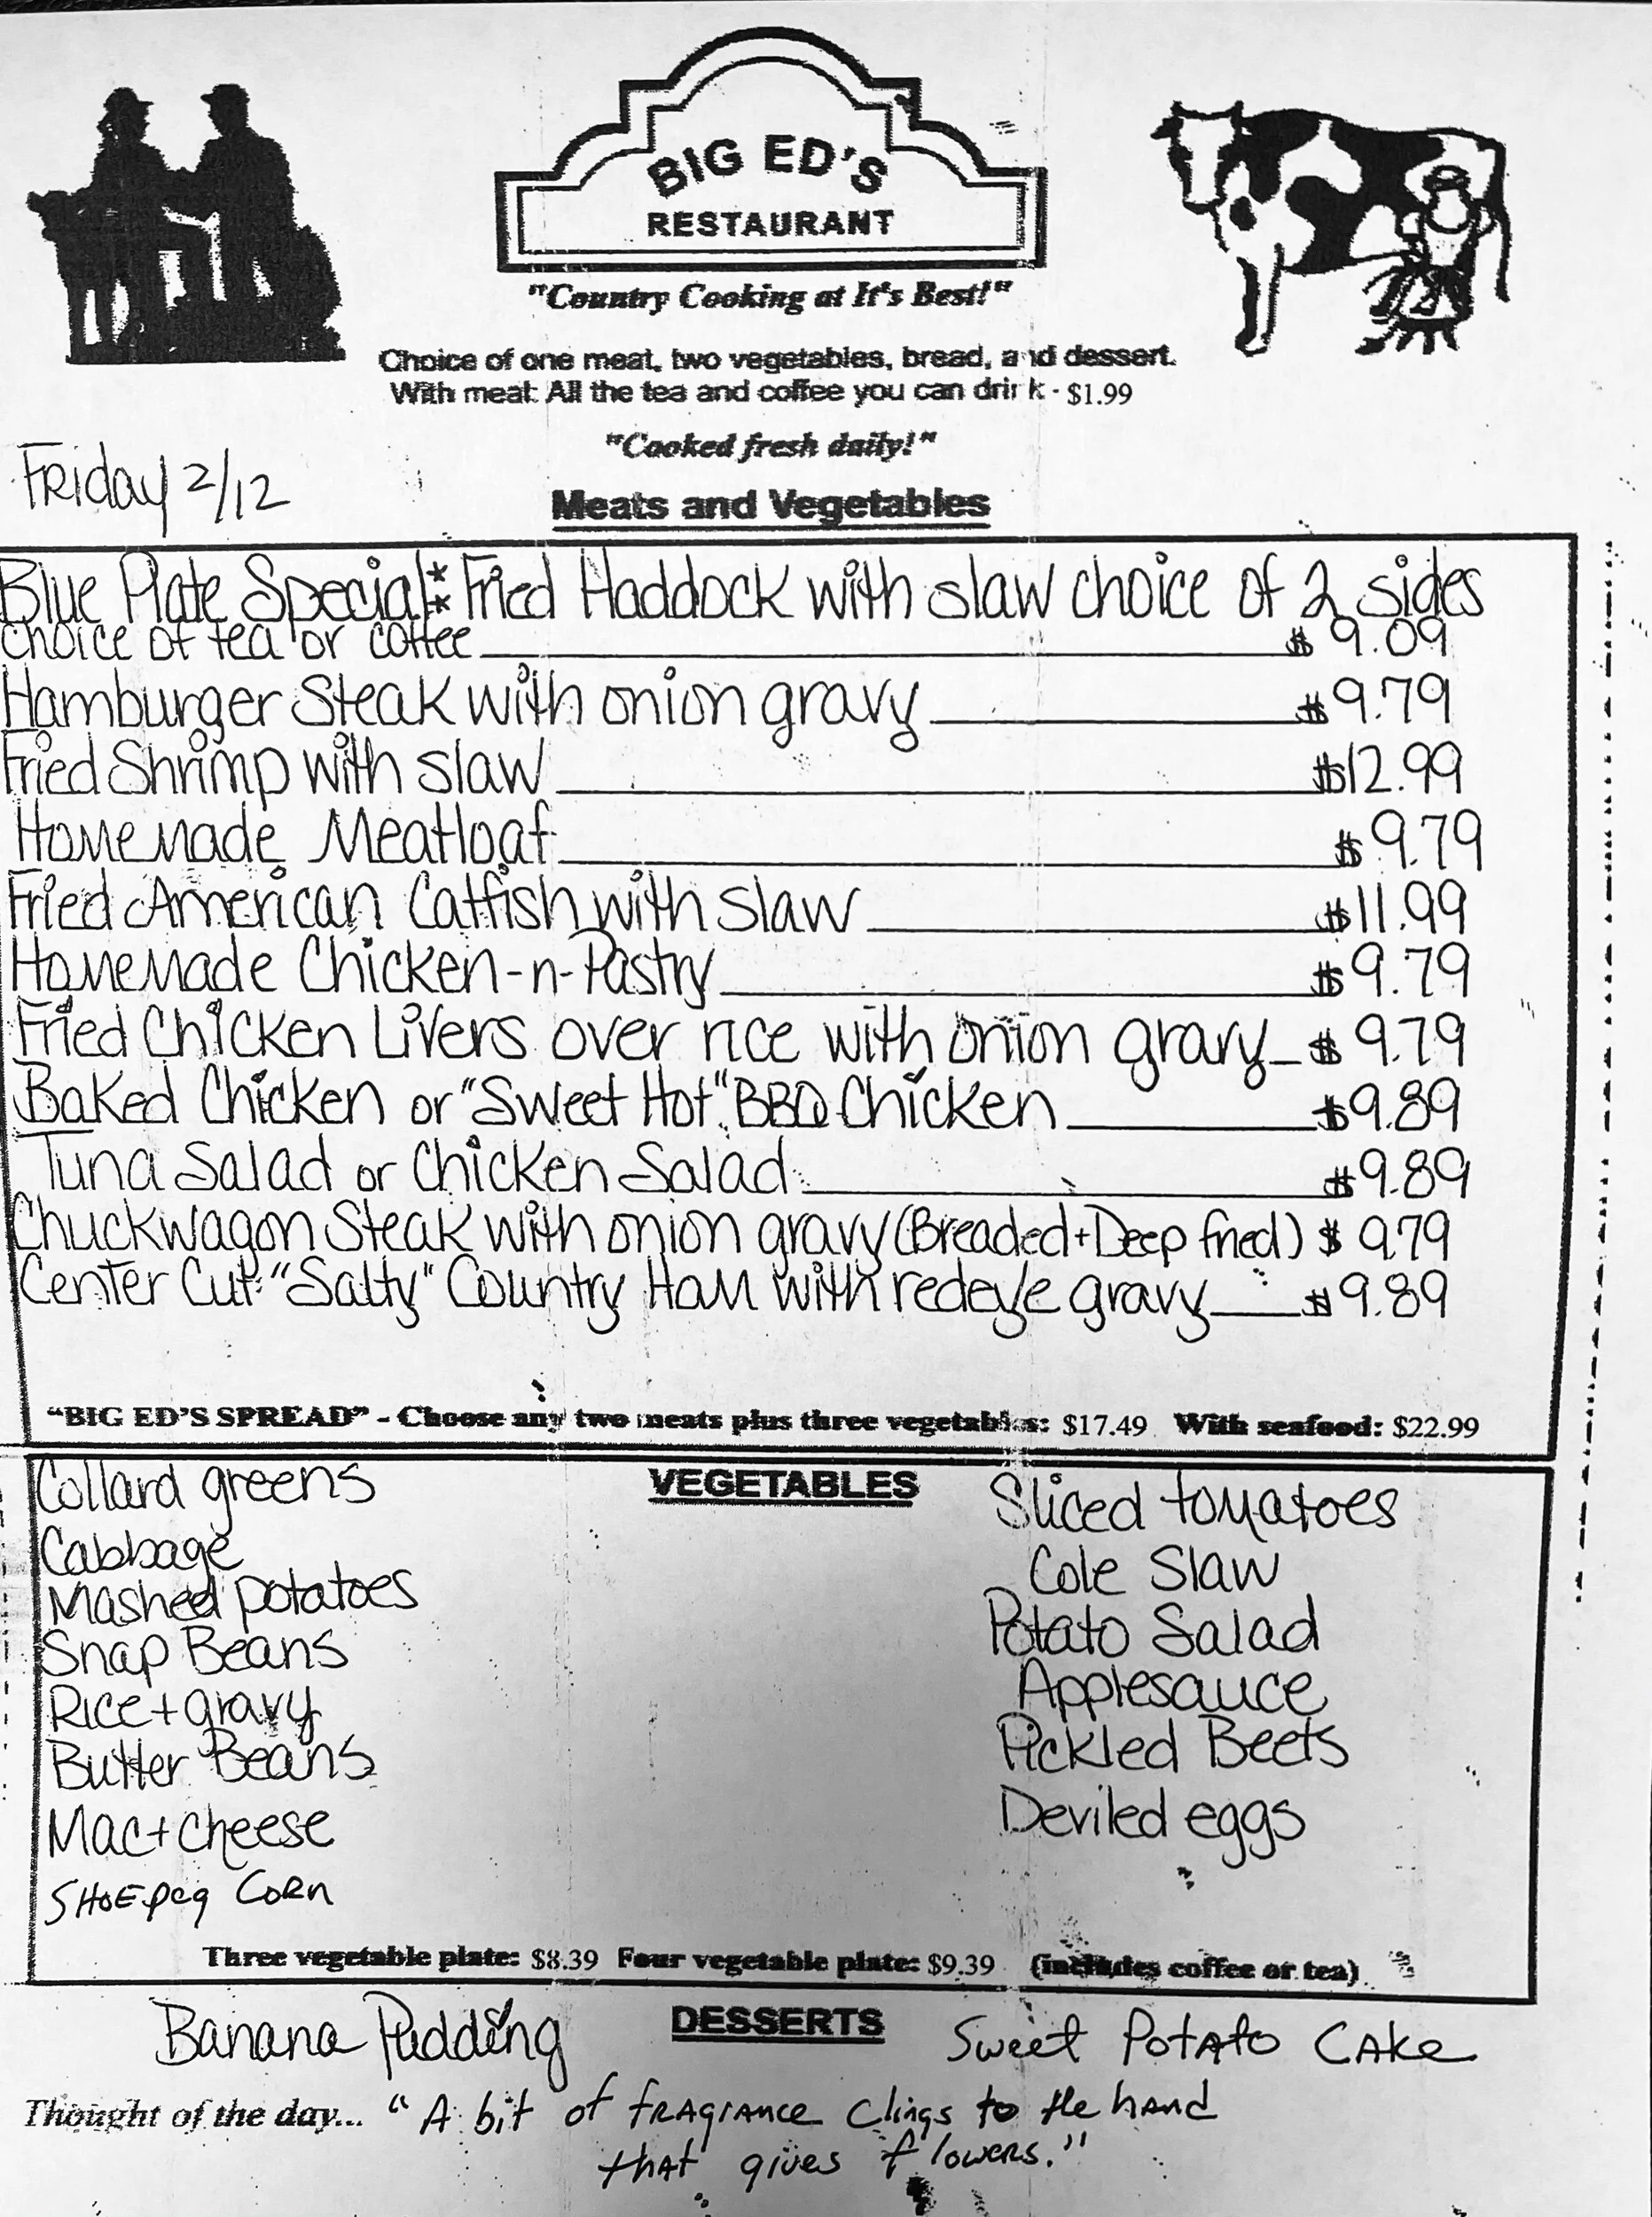 BIG ED'S
RESTAURANT
"Country Cooking at It's Best!"
Choice of one meat, two vegetables, bread, and dessert.
With meat: All the tea and coffee you can drink - $1.99
"Cooked fresh daily!"
Friday 2/12
Meats and Vegetables
Blue Plate Special** Fried Haddock with slaw choice of 2 sides
choice of tea or coffee $9.09
Hamburger Steak with onion gravy $9.79
Fried Shrimp with slaw $12.99
Homemade Meatloaf $9.79
Fried American Catfish with slaw $11.99
Homemade Chicken-n-Pastry $9.79
Fried Chicken Livers over rice with onion gravy $9.79
Baked Chicken or "Sweet Hot" BBQ Chicken $9.89
Tuna Salad or Chicken Salad $9.89
Chuckwagon Steak with onion gravy (Breaded+Deep fried) $9.79
Center Cut "Salty" Country Ham with redeye gravy $9.89
"BIG ED'S SPREAD" - Choose any two meats plus three vegetables: $17.49 With seafood: $22.99
VEGETABLES
Collard greens
Cabbage
Mashed potatoes
Snap Beans
Rice+gravy
Butter Beans
Mac+cheese
SHOEpeg CORN
Sliced tomatoes
Cole Slaw
Potato Salad
Applesauce
Pickled Beets
Deviled eggs
Three vegetable plate: $8.39 Four vegetable plate: $9.39 (includes coffee or tea)
DESSERTS
Banana Pudding
Sweet Potato Cake
Thought of the day... "A bit of fragrance clings to the hand
that gives flowers."